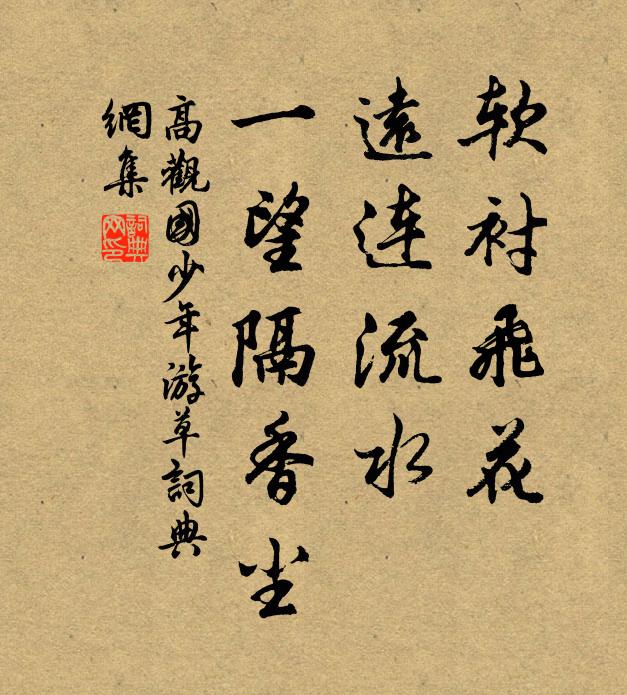 軟衬飛花
遠連流水
一望隔香尘
高觀國少年游草詞典
網集
詞典
网印